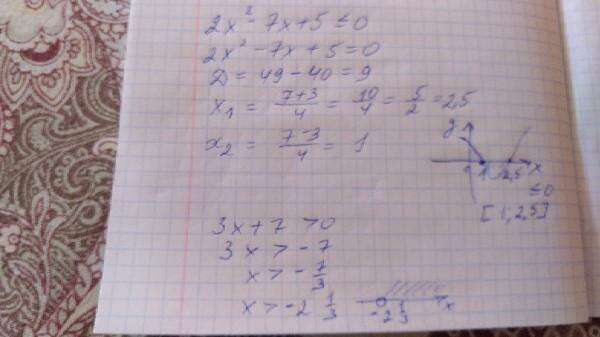 2x² - 7x + 5 ≤ 0
2x² - 7x + 5 = 0
D = 49 - 40 = 9
x₁ = (7+3)/4 = 10/4 = 5/2 = 2,5
x₂ = (7-3)/4 = 1
y
1 2,5 x
≤0
[1, 2,5]
3x + 7 > 0
3x > -7
x > -7/3
x > -2 1/3
-2 1/3 x